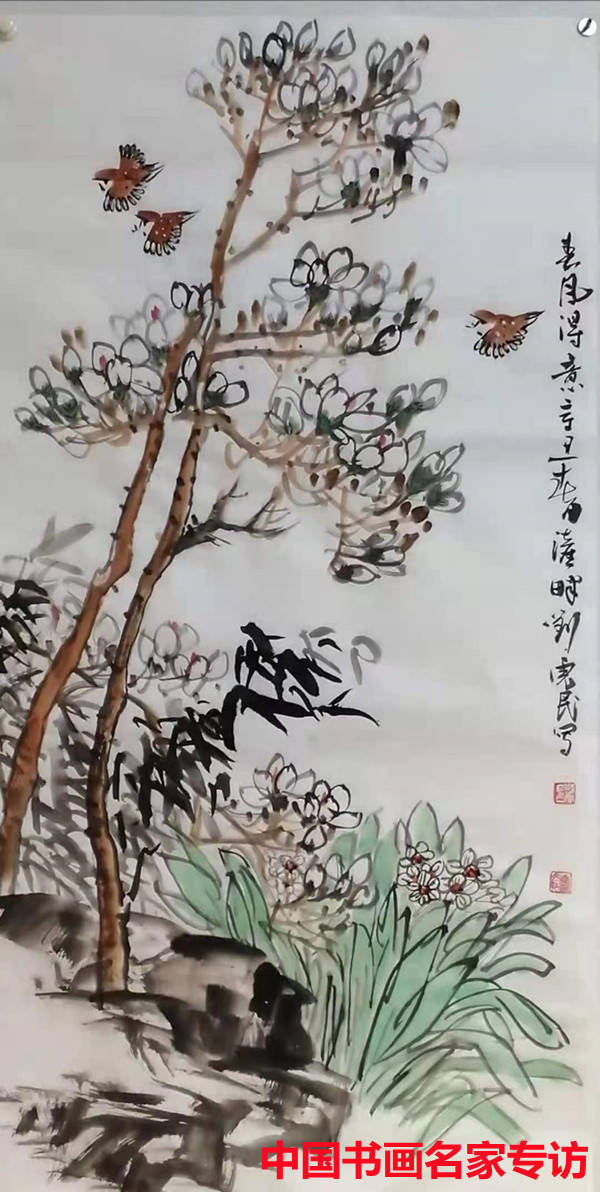 春风得意辛丑春月灌畔刘宪民写
中国书画名家专访